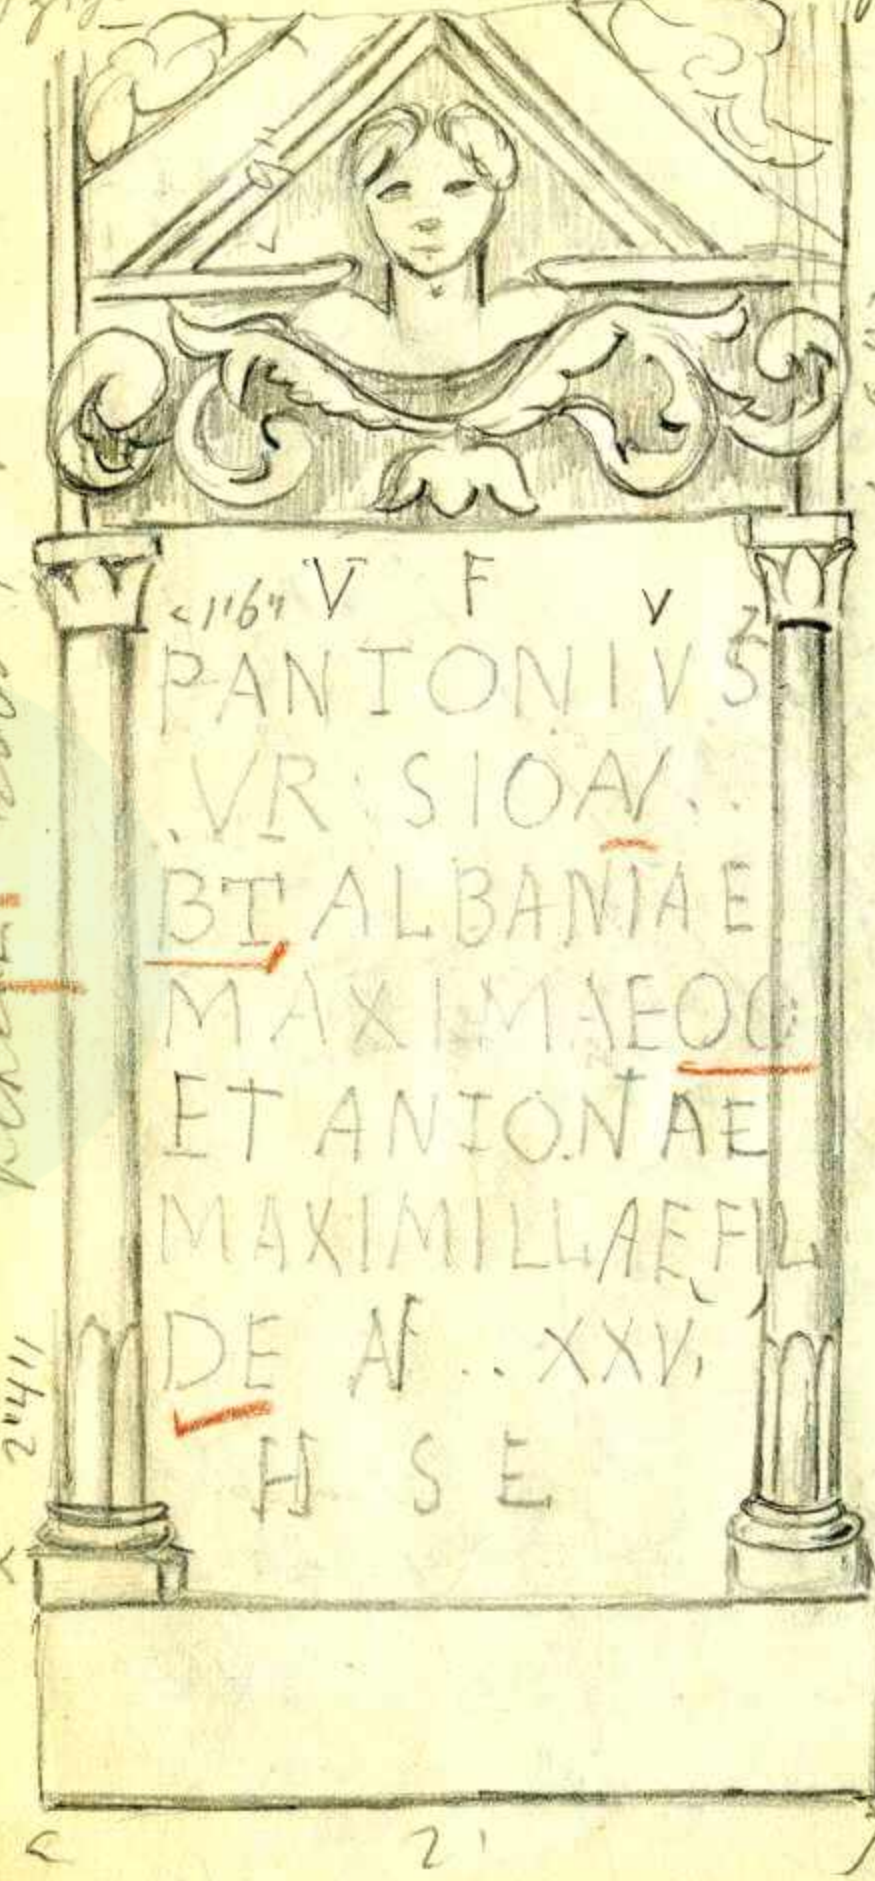 V F
<1'6"
PANTONIVS
VR SION..
BT ALBANIAE
MAXIMAEOO
ET ANTONAE
MAXIMILLAEFIL
DE AF .. XXV
H S E
2"4"
2'